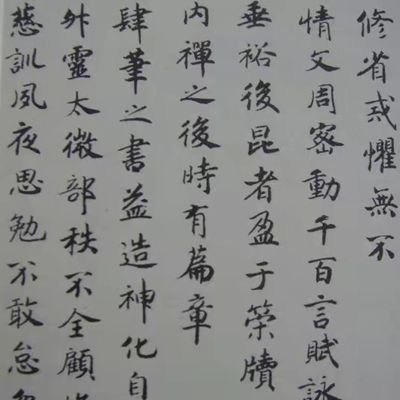 修省戒懼無不
情文周密動千百言賦詠
垂裕後昆者盈于牘
内禪之後時有篇章
肆筆之書益造神化自
外靈太微部秩不全顧
慈訓夙夜思勉不敢怠